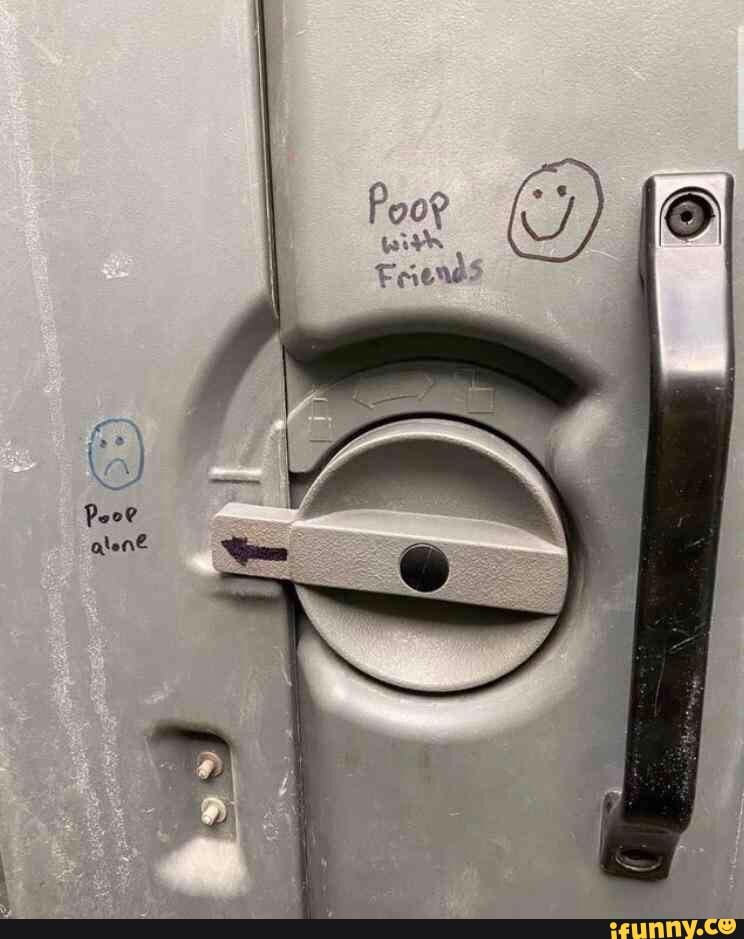 Poop
with
Friends
Poop
alone
ifunny.co